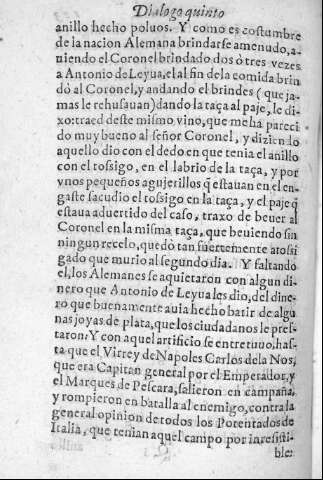 Dialogo quinto
anillo hecho poluos. Y como es costumbre
de la nacion Alemana brindarse amenudo, a-
uiendo el Coronel brindado dos ò tres vezes
a Antonio de Leyua, el al fin de la comida brin
dó al Coronel, y andando el brindes (que ja-
mas le rehusauan) dando la taça al paje, le di-
xo: traed deste mismo vino, que me ha pareci
do muy bueno al señor Coronel, y diziendo
aquello dio con el dedo en que tenia el anillo
con el tossigo, en el labrio de la taça, y por
vnos pequeños agujerillos q̃ estauan en el en-
gaste sacudio el tossigo en la taça, y el paje q̃
estaua aduertido del caso, traxo de beuer al
Coronel en la misma taça, que beuiendo sin
ningun recelo, quedò tan fuertemente atossi
gado que murio al segundo dia. Y faltando
el, los Alemanes se aquietaron con algun di-
nero que Antonio de Leyua les dio, del dine-
ro que buenamente auia hecho batir de algu
nas joyas de plata, que los ciudadanos le pres-
taron: Y con aquel artificio se entretuuo, has-
ta que el Virrey de Napoles Carlos de la Noy,
que era Capitan general por el Emperador, y
el Marques de Pescara, salieron en campaña,
y rompieron en batalla al enemigo, contra la
general opinion de todos los Potentados de
Italia, que tenian aquel campo por irresisti-
ble: